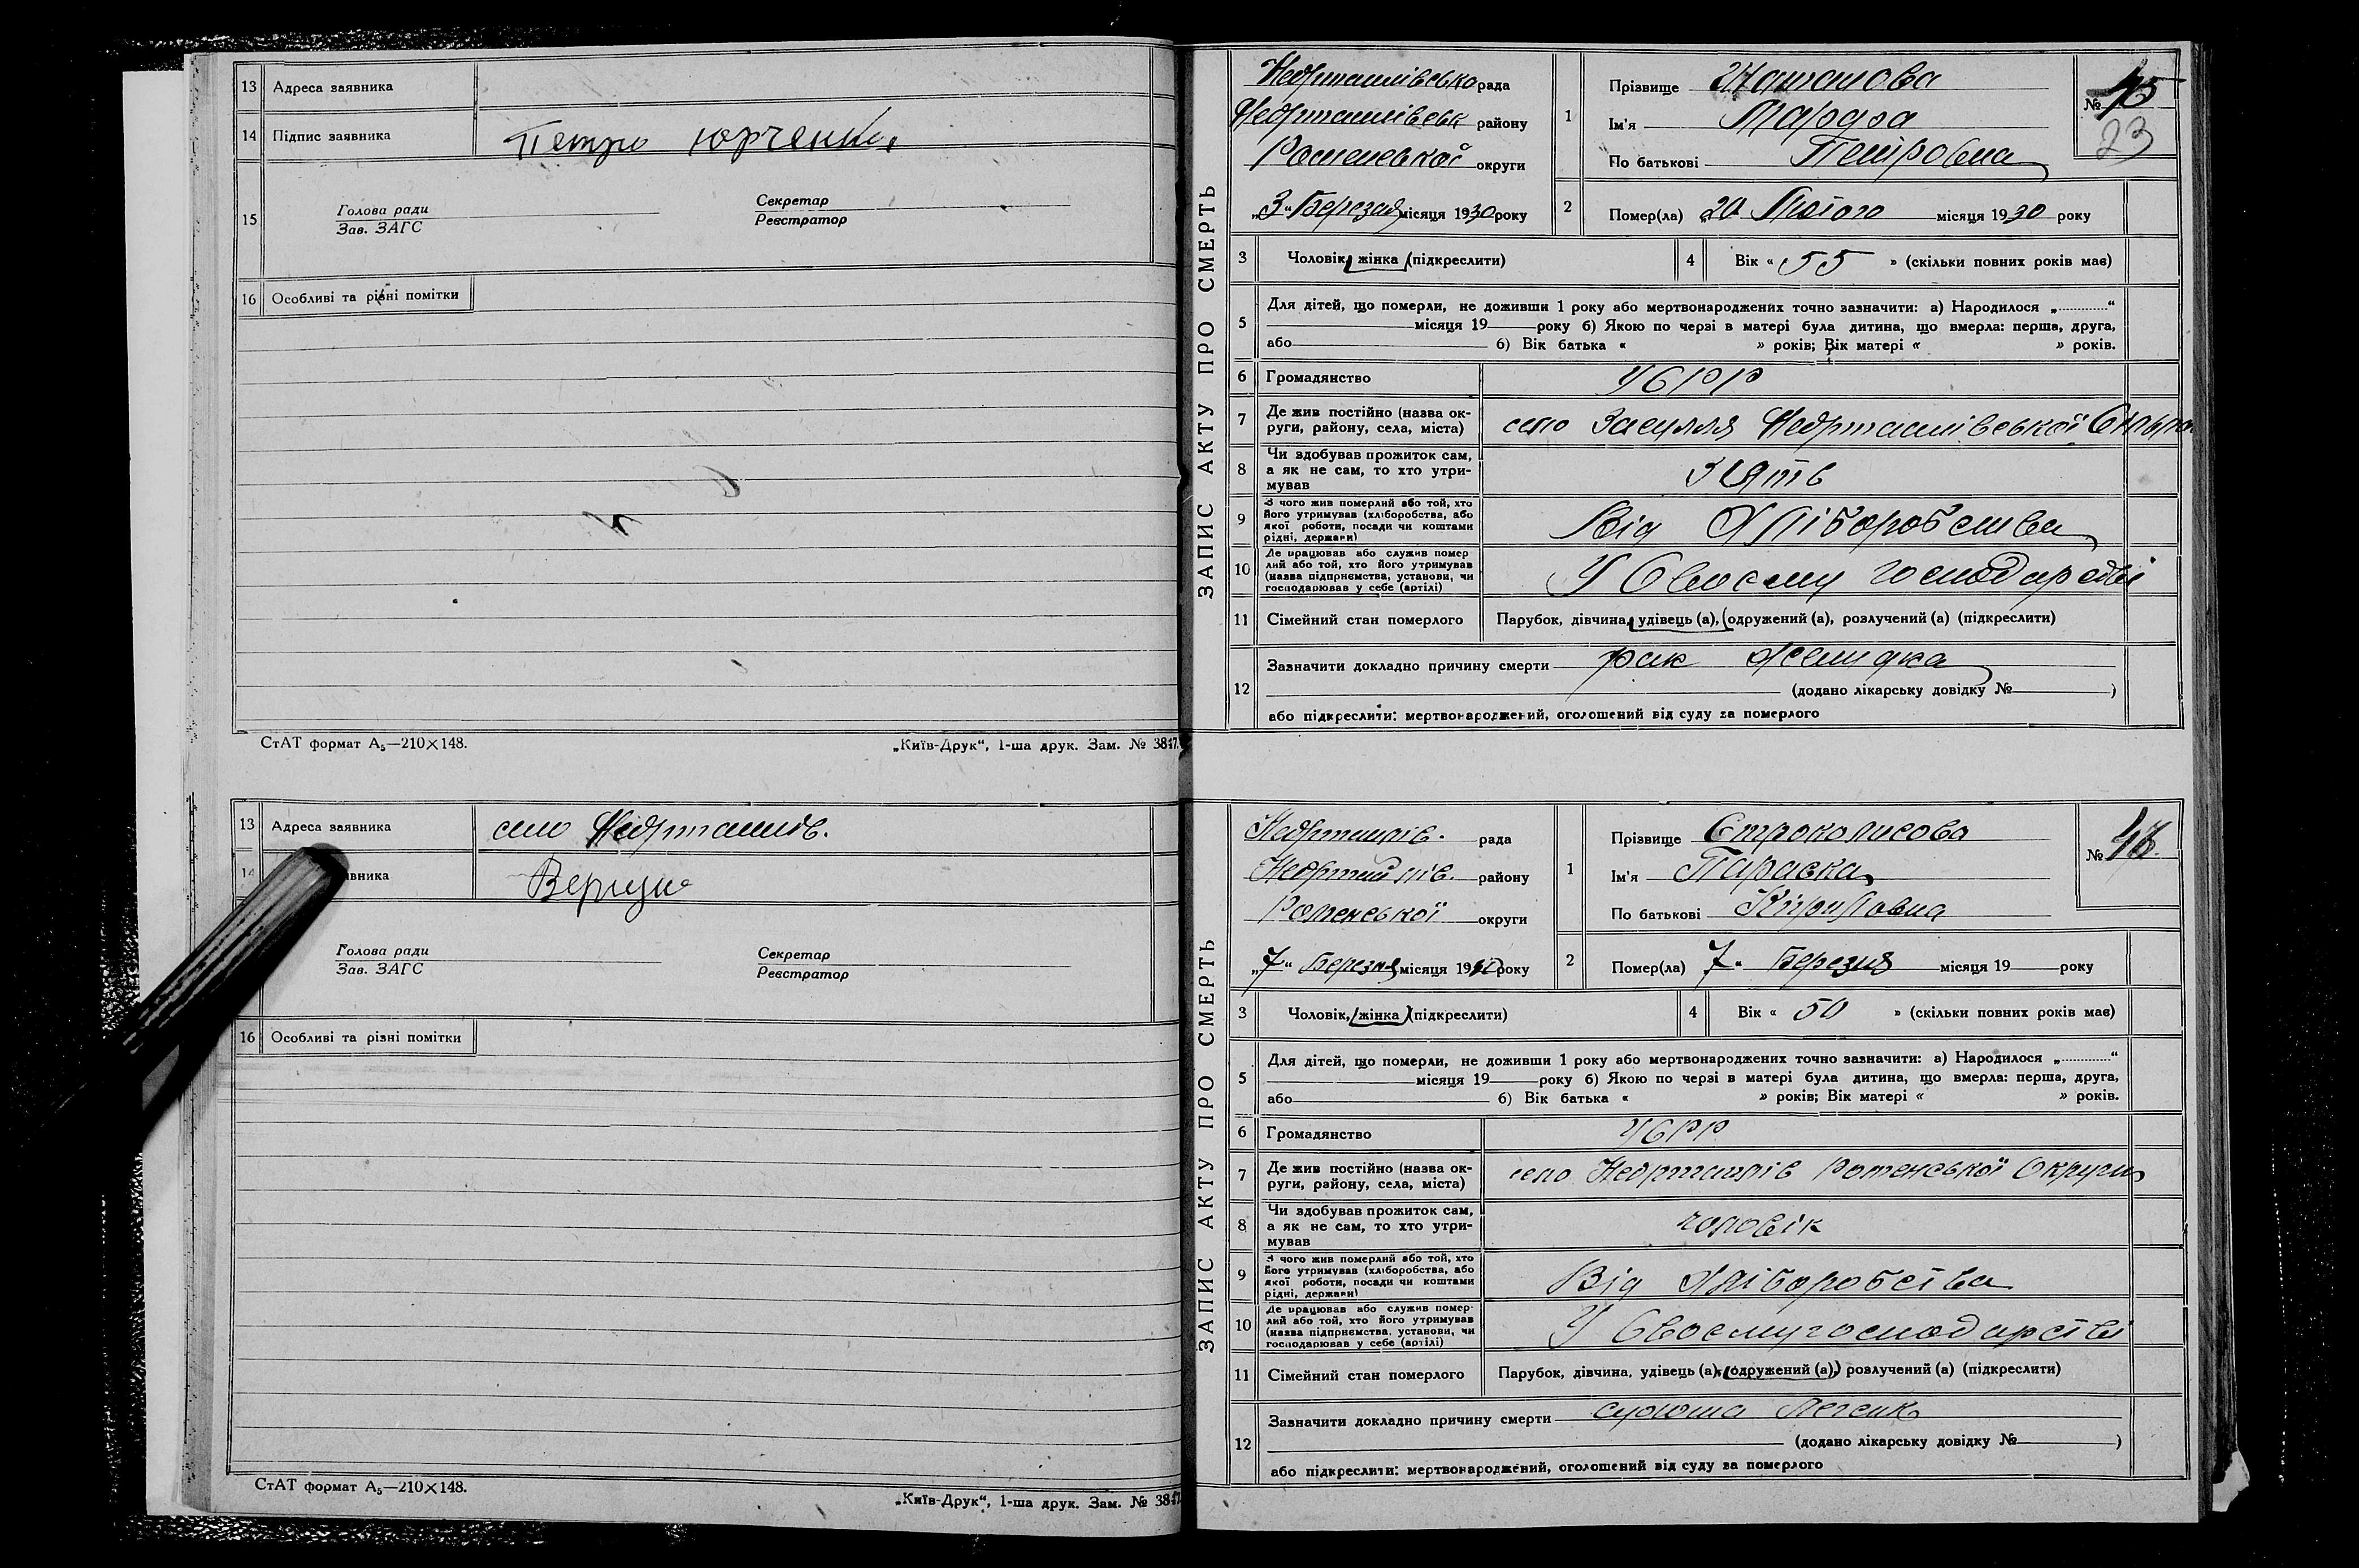 13 Адреса заявника
14 Підпис заявника Петро Юрченко
15 Голова ради Секретар
Зав. ЗАГС Реєстратор
16 Особливі та різні помітки
СтАТ формат А₅—210×148. „Київ-Друк“, 1-ша друк. Зам. № 3847.
13 Адреса заявника село Недригайлів.
14
Голова ради Секретар
Зав. ЗАГС Реєстратор
16 Особливі та різні помітки
СтАТ формат А₅—210×148.
„Київ-Друк“, 1-ша друк. Зам. № 3847
ЗАПИС АКТУ ПРО СМЕРТЬ
рада
району
Роменської округи
„3“ Березня місяця 1930 року
1 Прізвище
Ім'я
По батькові Петровна
№ 45
23
2 Помер(ла) „20 Лютого місяця 1930 року
3 Чоловік, жінка (підкреслити)
4 Вік « 55 » (скільки повних років має)
5 Для дітей, що померли, не доживши 1 року або мертвонароджених точно зазначити: а) Народилося „............“
місяця 19 року б) Якою по черзі в матері була дитина, що вмерла: перша, друга,
або б) Вік батька « » років; Вік матері « » років.
6 Громадянство УСРР
7 Де жив постійно (назва ок-
руги, району, села, міста) село Засулля Недригайлівської
8 Чи здобував прожиток сам,
а як не сам, то хто утри-
мував Зять
9 З чого жив померлий або той, хто
його утримував (хліборобства, або
якої роботи, посади чи коштами
рідні, держави) Від Хліборобства
10 Де працював або служив помер
лий або той, хто його утримував
(назва підприємства, установи, чи
господарював у себе (артілі) У Своєму господарстві
11 Сімейний стан померлого Парубок, дівчина, удівець (а), одружений (а), розлучений (а) (підкреслити)
12 Зазначити докладно причину смерти рак Желудка
(додано лікарську довідку № )
або підкреслити: мертвонароджений, оголошений від суду за померлого
ЗАПИС АКТУ ПРО СМЕРТЬ
Недригайлів. рада
Недригайлів. району
Роменської округи
„7“ Березня місяця 1930 року
1 Прізвище Строколисова
Ім'я Параска
По батькові Кириловна
№ 46
2 Помер(ла) 7“ Березня місяця 19 року
3 Чоловік, жінка (підкреслити)
4 Вік « 50 » (скільки повних років має)
5 Для дітей, що померли, не доживши 1 року або мертвонароджених точно зазначити: а) Народилося „............“
місяця 19 року б) Якою по черзі в матері була дитина, що вмерла: перша, друга,
або б) Вік батька « » років; Вік матері « » років.
6 Громадянство УСРР
7 Де жив постійно (назва ок-
руги, району, села, міста) село Недригайлів Роменської Округи
8 Чи здобував прожиток сам,
а як не сам, то хто утри-
мував чоловік
9 З чого жив померлий або той, хто
його утримував (хліборобства, або
якої роботи, посади чи коштами
рідні, держави) Від Хліборобства
10 Де працював або служив помер-
лий або той, хто його утримував
(назва підприємства, установи, чи
господарював у себе (артілі) У Своєму господарстві
11 Сімейний стан померлого Парубок, дівчина, удівець (а), одружений (а), розлучений (а) (підкреслити)
12 Зазначити докладно причину смерти Легенів
(додано лікарську довідку № )
або підкреслити: мертвонароджений, оголошений від суду за померлого